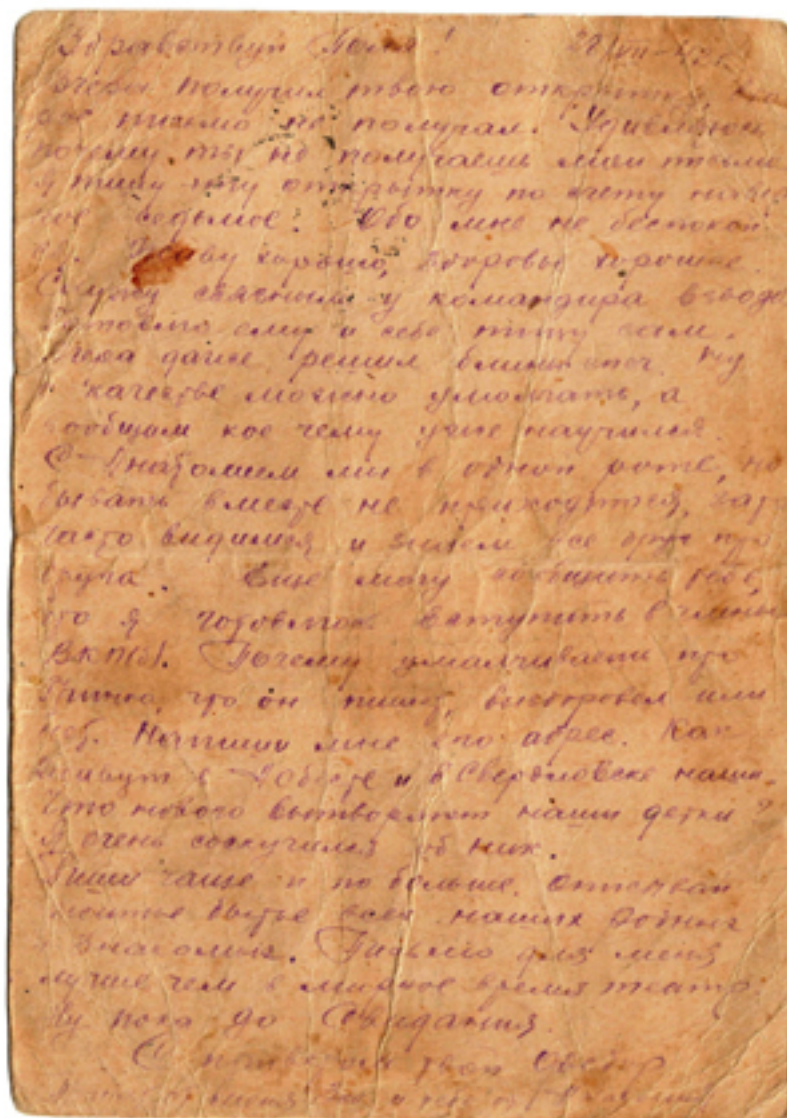 Здравствуй Поля!
Вчера получил твою открытку,
письмо не получал. Удивляюсь
почему ты не получаешь мои письма
Я пишу эту открытку по счету
седьмое. Обо мне не беспокой
ся. Живу хорошо, здоровье хорошее.
Служу связным у командира взвода
Готовлю ему и себе пищу сам.
даже решил блины печ. Ну
о качестве можно умолчать, а
вообщем кое чему уже научился.
С Анатолием мы в одной роте, но
бывать вместе не приходится,
часто видимся и знаем все друг про
друга. Еще могу сообщить тебе,
что я готовлюсь вступить в члены
ВКП(б). Почему умалчиваеш про
что он пишет, выздоровел или
нет. Напиши мне его адрес. Как
живут в и в Свердловске наши.
Что нового вытворяют наши детки?
Я очень соскучился об них.
Пиши чаще и по больше. описывай
бытье всех наших родных
и знакомых. Письмо для меня
лучше чем в мирное время театр.
Ну пока до Свидания.
С твой